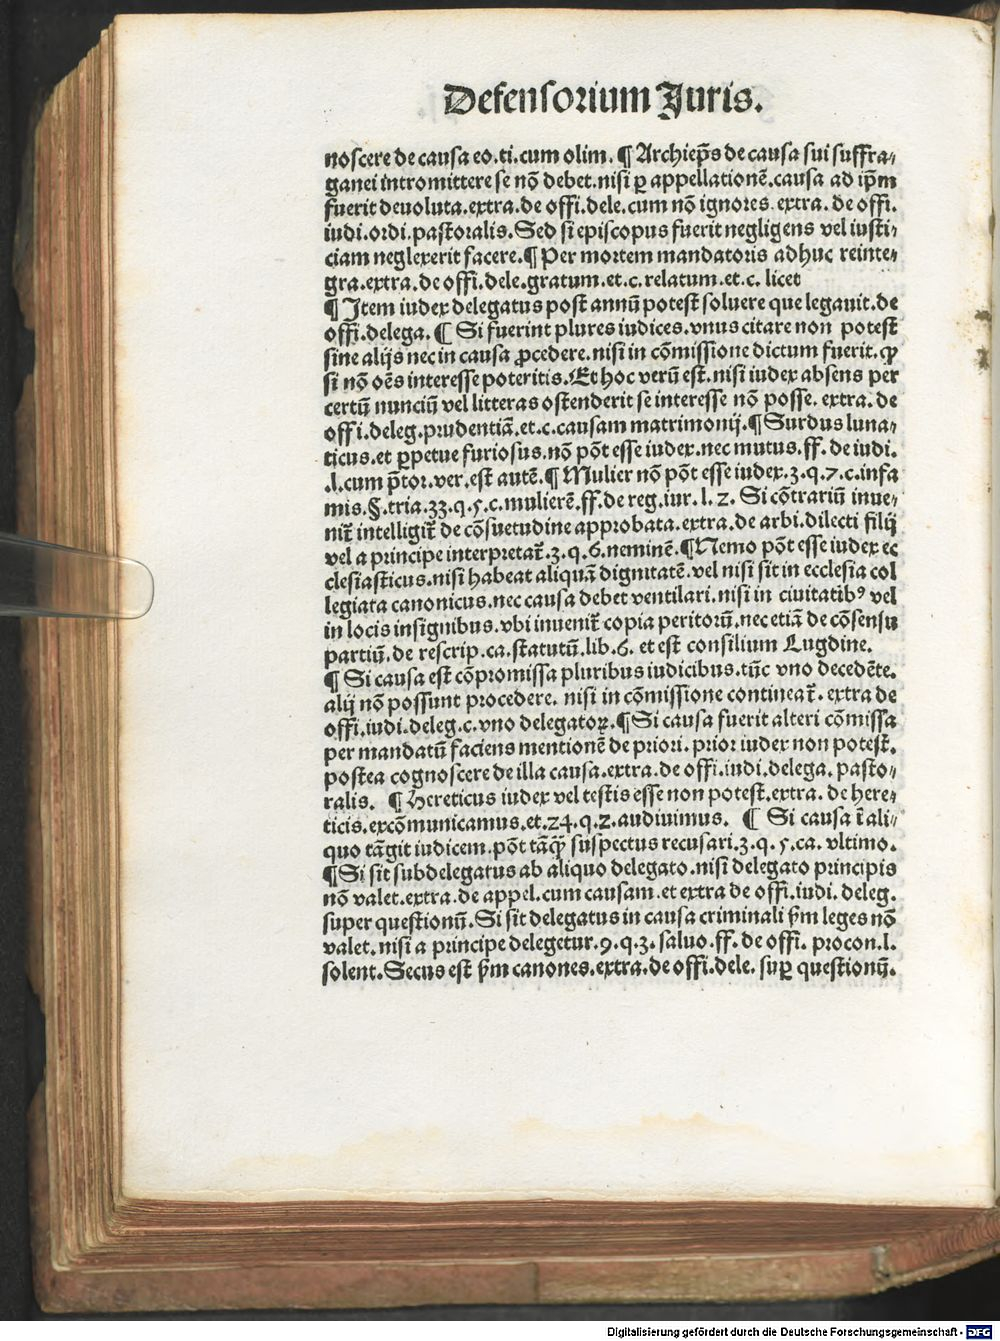 Defensorium Juris.
noscere de causa eo.ti.cum olim. ¶ Archiep̄s de causa sui suffra-
ganei intromittere se nō debet.nisi ꝑ appellationē.causa ad ip̄m
fuerit deuoluta.extra.de offi.dele.cum nō ignores.extra.de offi.
iudi.ordi.pastoralis.Sed si episcopus fuerit negligens vel iusti-
ciam neglexerit facere.¶ Per mortem mandatoris adhuc reinte-
gra.extra.de offi.dele.gratum.et.c.relatum.et.c. licet
¶ Item iudex delegatus post annū potest soluere que legauit.de
offi.delega.¶ Si fuerint plures iudices.vnus citare non potest
sine alijs nec in causa ꝓcedere.nisi in cōmissione dictum fuerit.ꝙ
si nō oēs interesse poteritis.Et hoc verū est.nisi iudex absens per
certū nunciū vel litteras ostenderit se interesse nō posse. extra.de
offi.deleg.prudentiā.et.c.causam matrimonij.¶ Surdus luna-
ticus.et ꝑpetue furiosus.nō pōt esse iudex.nec mutus.ff.de iudi.
.l.cum p̄tor.ver.est autē.¶ Mulier nō pōt esse iudex.3.q.7.c.infa
mis.§.tria.33.q.5.c.mulierē.ff.de reg.iur.l.2. Si cōtrariū inue-
nit̄ intelligit̄ de cōsuetudine approbata.extra.de arbi.dilecti filij
vel a principe interpretat̄.3.q.6.neminē.¶ Nemo pōt esse iudex ec
clesiasticus.nisi habeat aliquā dignitatē.vel nisi sit in ecclesia col
legiata canonicus.nec causa debet ventilari.nisi in ciuitatibꝰ vel
in locis insignibus.vbi inuenit̄ copia peritorū.nec etiā de cōsensu
partiū.de rescrip.ca.statutū.lib.6. et est consilium Lugdine.
¶ Si causa est cōpromissa pluribus iudicibus.tūc vno decedēte.
alij nō possunt procedere. nisi in cōmissione contineat̄. extra de
offi.iudi.deleg.c.vno delegatoꝝ.¶ Si causa fuerit alteri cōmissa
per mandatū faciens mentionē de priori.prior iudex non potest.
postea cognoscere de illa causa.extra.de offi.iudi.delega.pasto-
ralis. ¶ Hereticus iudex vel testis esse non potest.extra.de here-
ticis.excōmunicamus.et.24.q.2.audiuimus. ¶ Si causa ī ali-
quo tāgit iudicem.pōt tāꝙ̄ suspectus recusari.3.q.5.ca.vltimo.
¶ Si sit subdelegatus ab aliquo delegato.nisi delegato principis
nō valet.extra.de appel.cum causam.et extra de offi.iudi.deleg.
super questionū.Si sit delegatus in causa criminali ẜm leges nō
valet.nisi a principe delegetur.9.q.3.saluo.ff.de offi.procon.l.
solent.Secus est ẜm canones.extra.de offi.dele.suꝑ questionū.
Digitalisierung gefördert durch die Deutsche Forschungsgemeinschaft - DFG